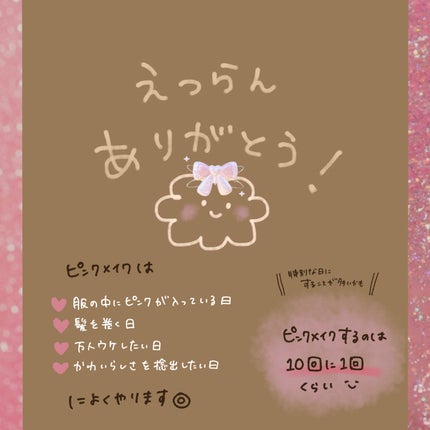 えつらん
ありがとう！
ピンクメイクは
服の中にピンクが入っている日
髪を巻く日
万人ウケしたい日
かわいらしさを捻出したい日
によくやります◎
特別な日に
することが多いかも
ピンクメイクするのは
10回に1回
くらい